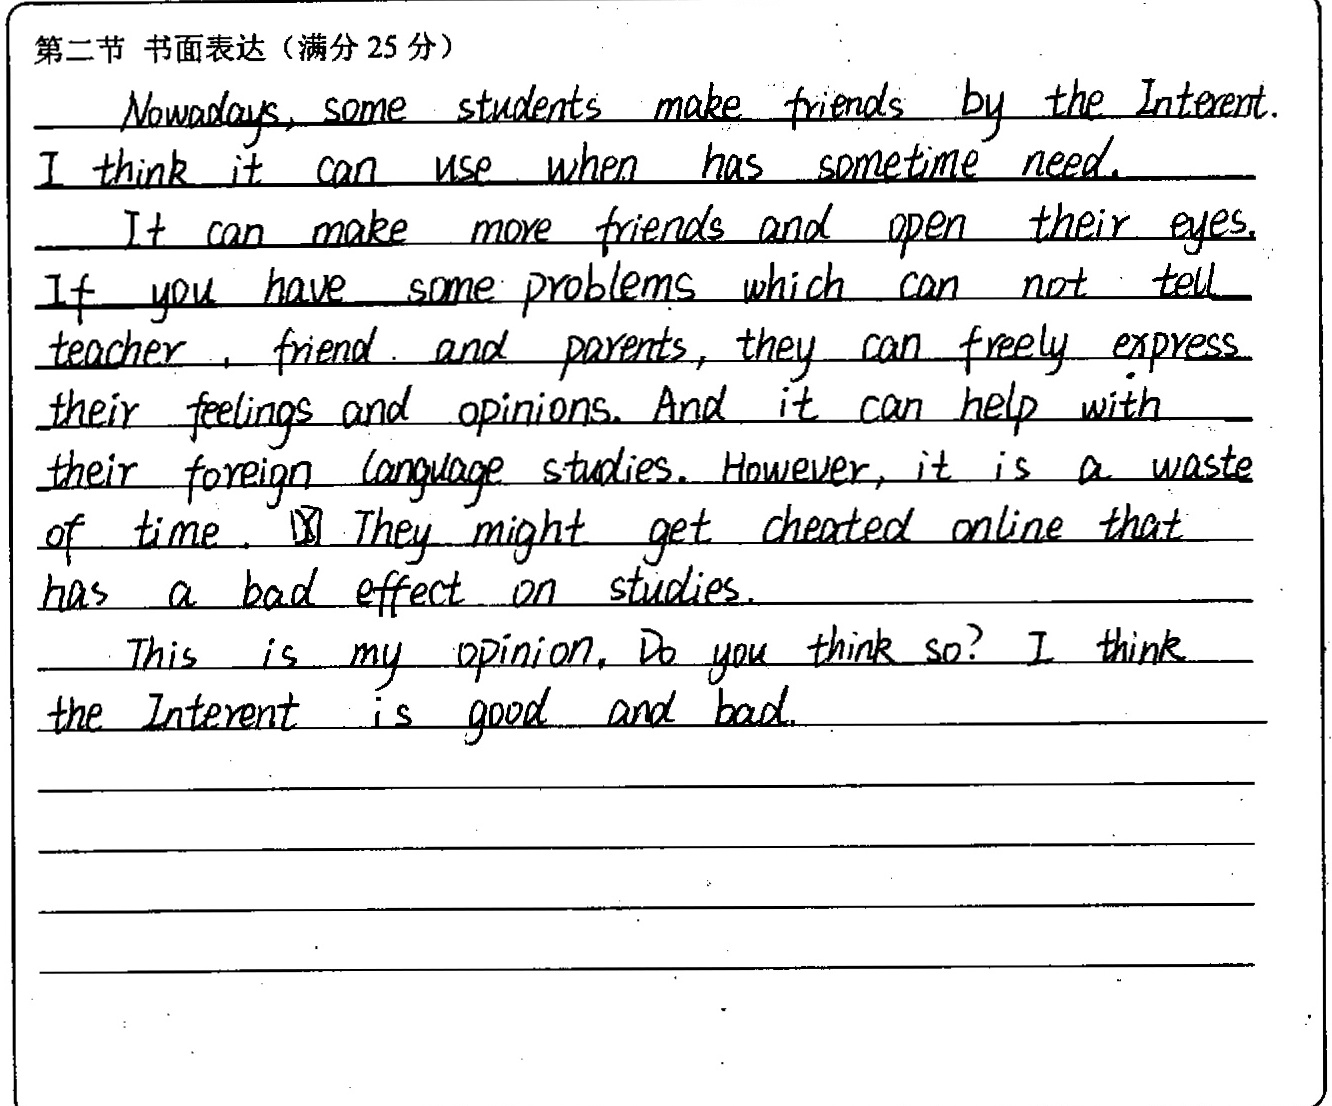 第二节 书面表达（满分 25 分）
Nowadays, some students make friends by the Interent.
I think it can use when has sometime need.
It can make more friends and open their eyes.
If you have some problems which can not tell
teacher, friend and parents, they can freely express
their feelings and opinions. And it can help with
their foreign language studies. However, it is a waste
of time. They might get cheated online that
has a bad effect on studies.
This is my opinion. Do you think so? I think
the Interent is good and bad.